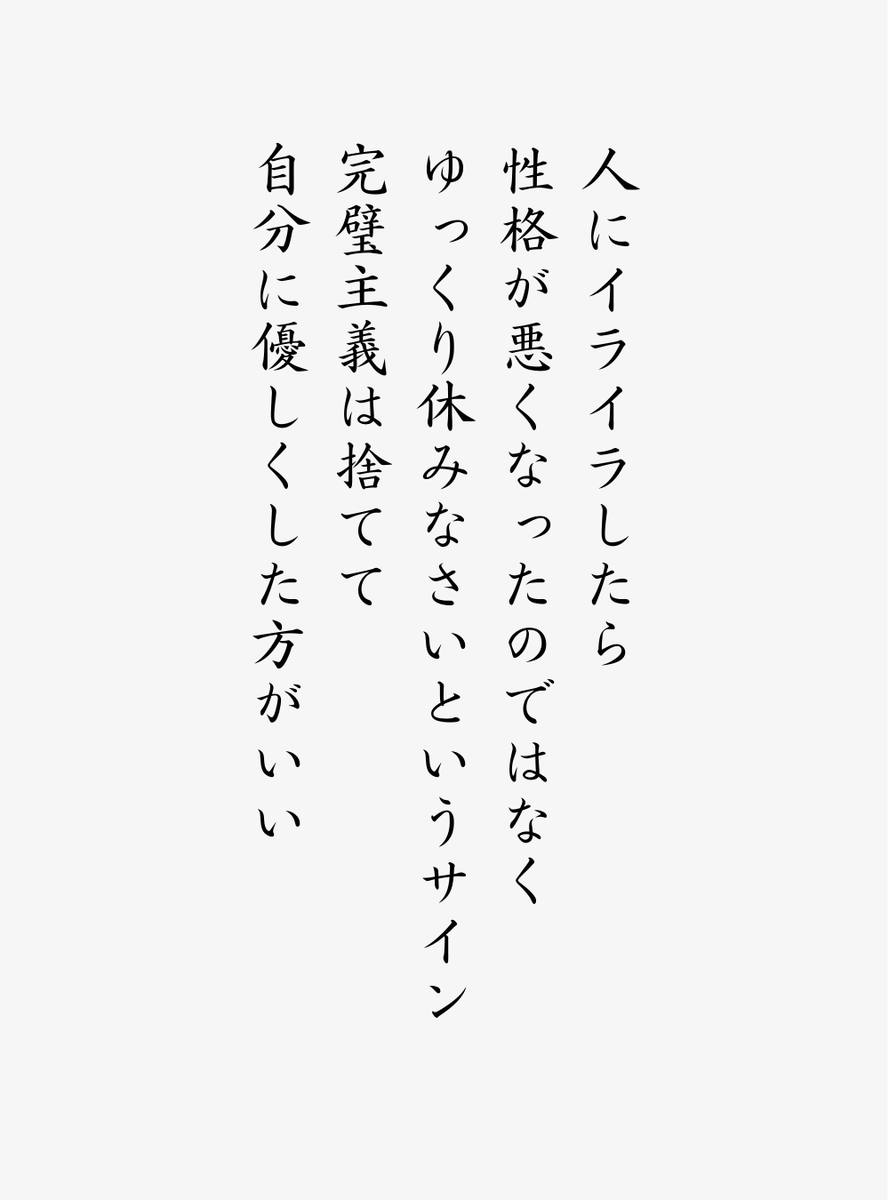 人にイライラしたら
性格が悪くなったのではなく
ゆっくり休みなさいというサイン
完璧主義は捨てて
自分に優しくした方がいい